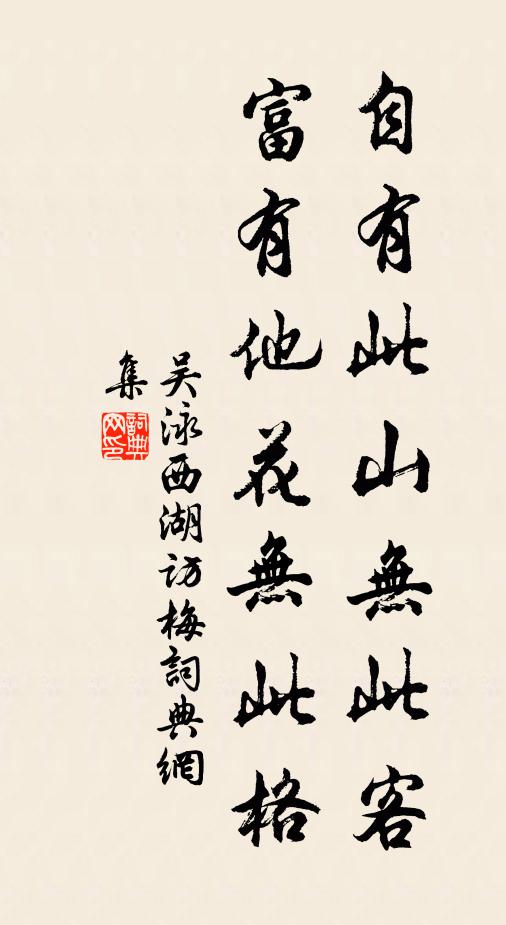 自有此山無此客
富有他花無此格
吳泳西湖訪梅詞典網
集
詞典
网印